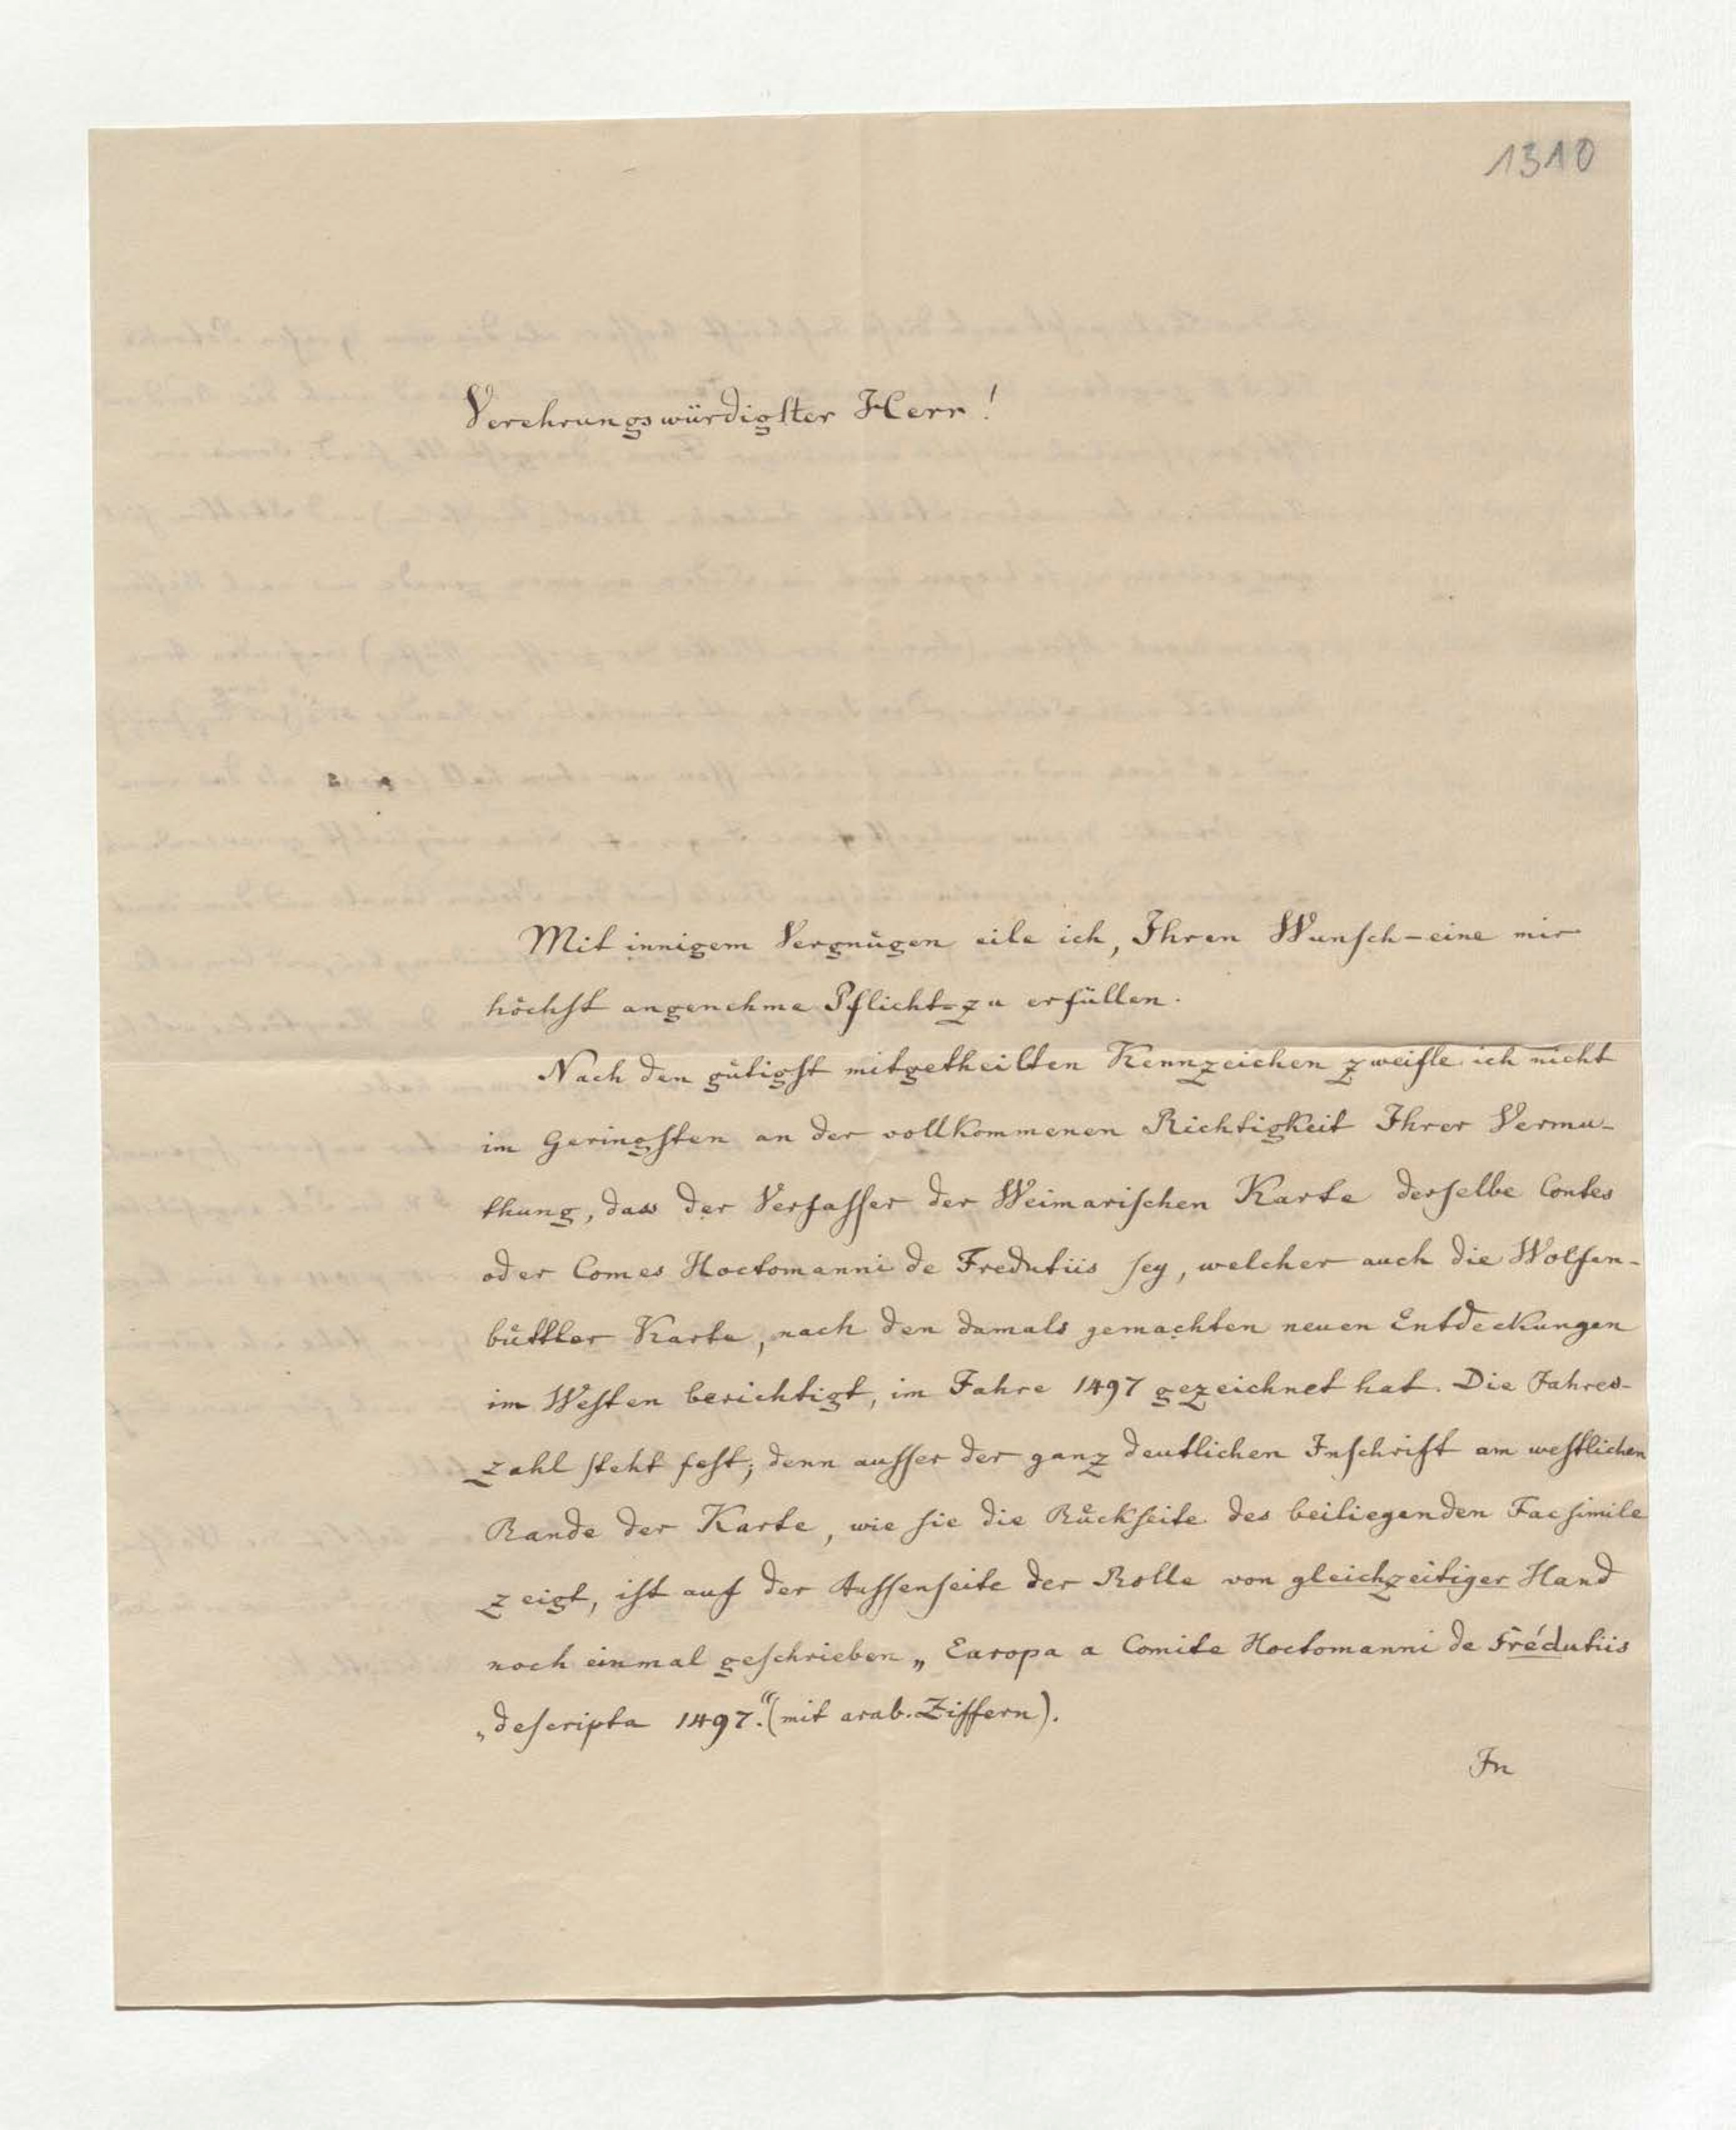 1310
Verehrungswürdigſter Herr!
Mit innigem Vergnügen eile ich, Ihren Wunſch – eine mir
höchſt angenehme Pflicht – zu erfüllen.
Nach den gütigſt mitgetheilten Kennzeichen zweifle ich nicht
im Geringſten an der vollkommenen Richtigkeit Ihrer Vermu-
thung, dass der Verfaſſer der Weimariſchen Karte derſelbe Contes
oder Comes Hoctomanni de Fredutiis ſey, welcher auch die Wolfen-
büttler Karte, nach den damals gemachten neuen Entdeckungen
im Weſten berichtigt, im Jahre 1497 gezeichnet hat. Die Jahres-
zahl ſteht feſt; denn auſſer der ganz deutlichen Inſchrift am weſtlichen
Rande der Karte, wie ſie die Rückſeite des beiliegenden Facſimile
zeigt, iſt auf der Auſſenſeite der Rolle von gleichzeitiger Hand
noch einmal geſchrieben „Europa a Comite Hoctomanni de Frédutiis
„deſcripta 1497.“ (mit arab. Ziffern).
In